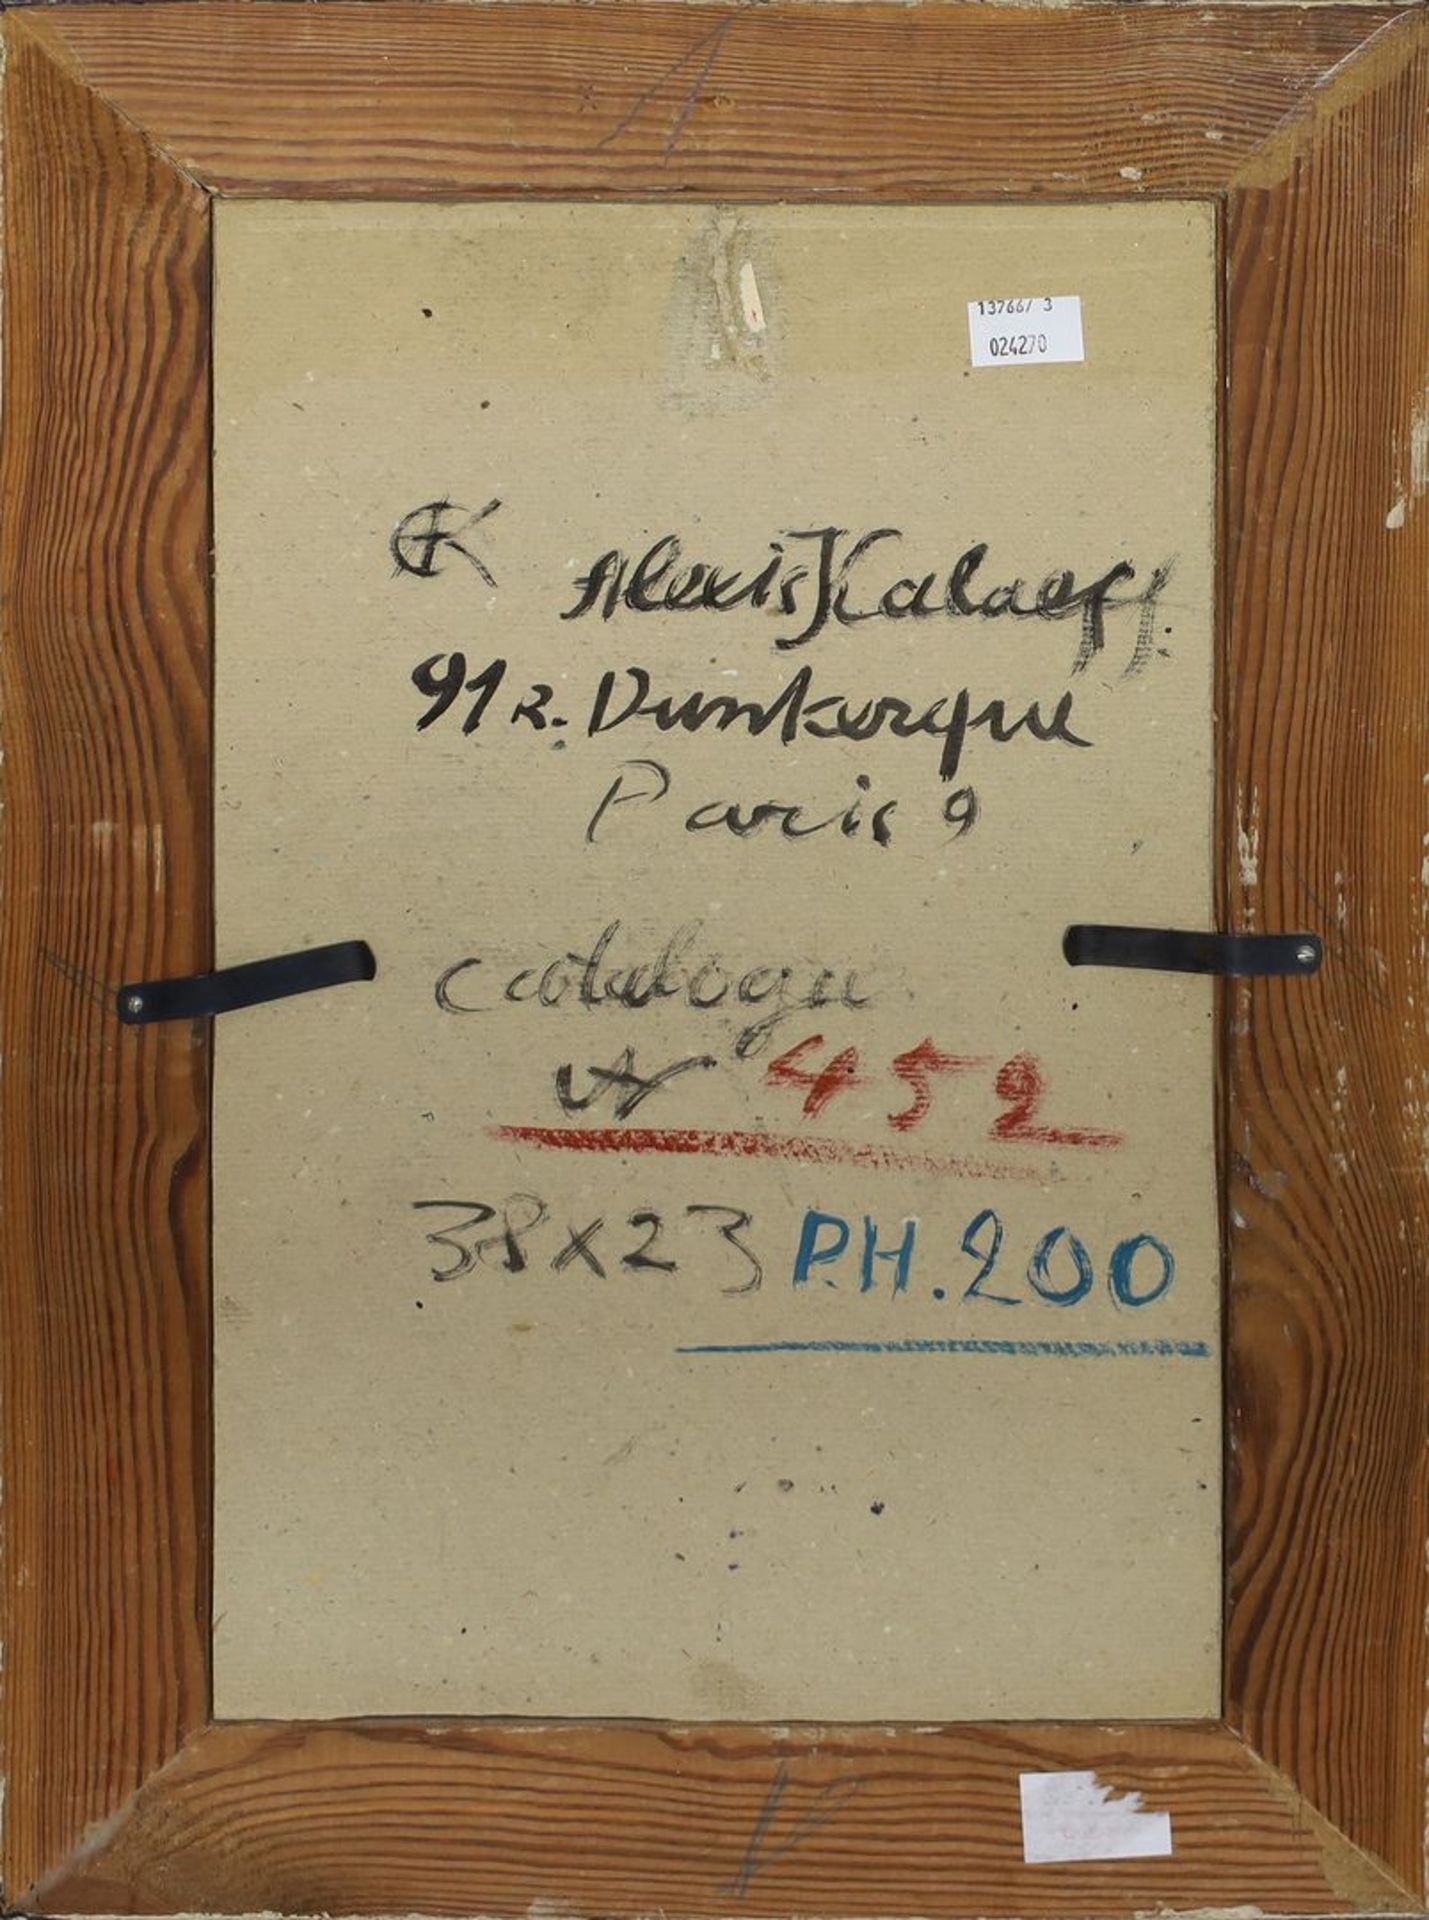 137667 3
024270
AK Alexis Kalaeff.
91 R. Dunkerque
Paris 9
Catalogu
N 452
38x23 P.H.200